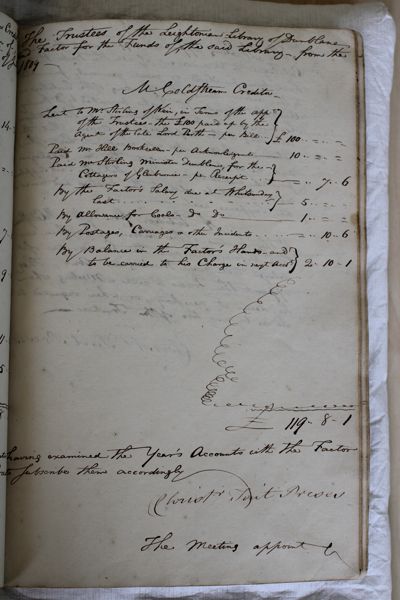 The Trustees of the Leightonian Library of Dunblane
Factor for the Funds of the said Library - from the
1809
M. Coldstream Credits
Lent to Mr Stirling of Keir, in Terms of the app
of the Trustees - the £100 paid up by the
Agent of the late Lord Perth - per Bill £100 .. " .. "
Paid Mr Hill Bookseller - per Acknowledgmt 10 .. " .. "
Paid Mr Stirling Minister Dunblane for the
Cottagers of - per Receipt " .. 7 .. 6
By the Factor's Salary due at Whitsunday
last 5 .. " .. "
By allowance for Coals Do Do 1 .. " .. "
By Postages, Carriages & other Incidents " .. 10 .. 6
By Balance in the Factor's Hands and
to be carried to his Charge in next Acct 2 .. 10 .. 1
£ 119 - 8 - 1
having examined the Year's Accounts with the Factor
subscribe them accordingly
Christr Tait Preses
The Meeting appoint